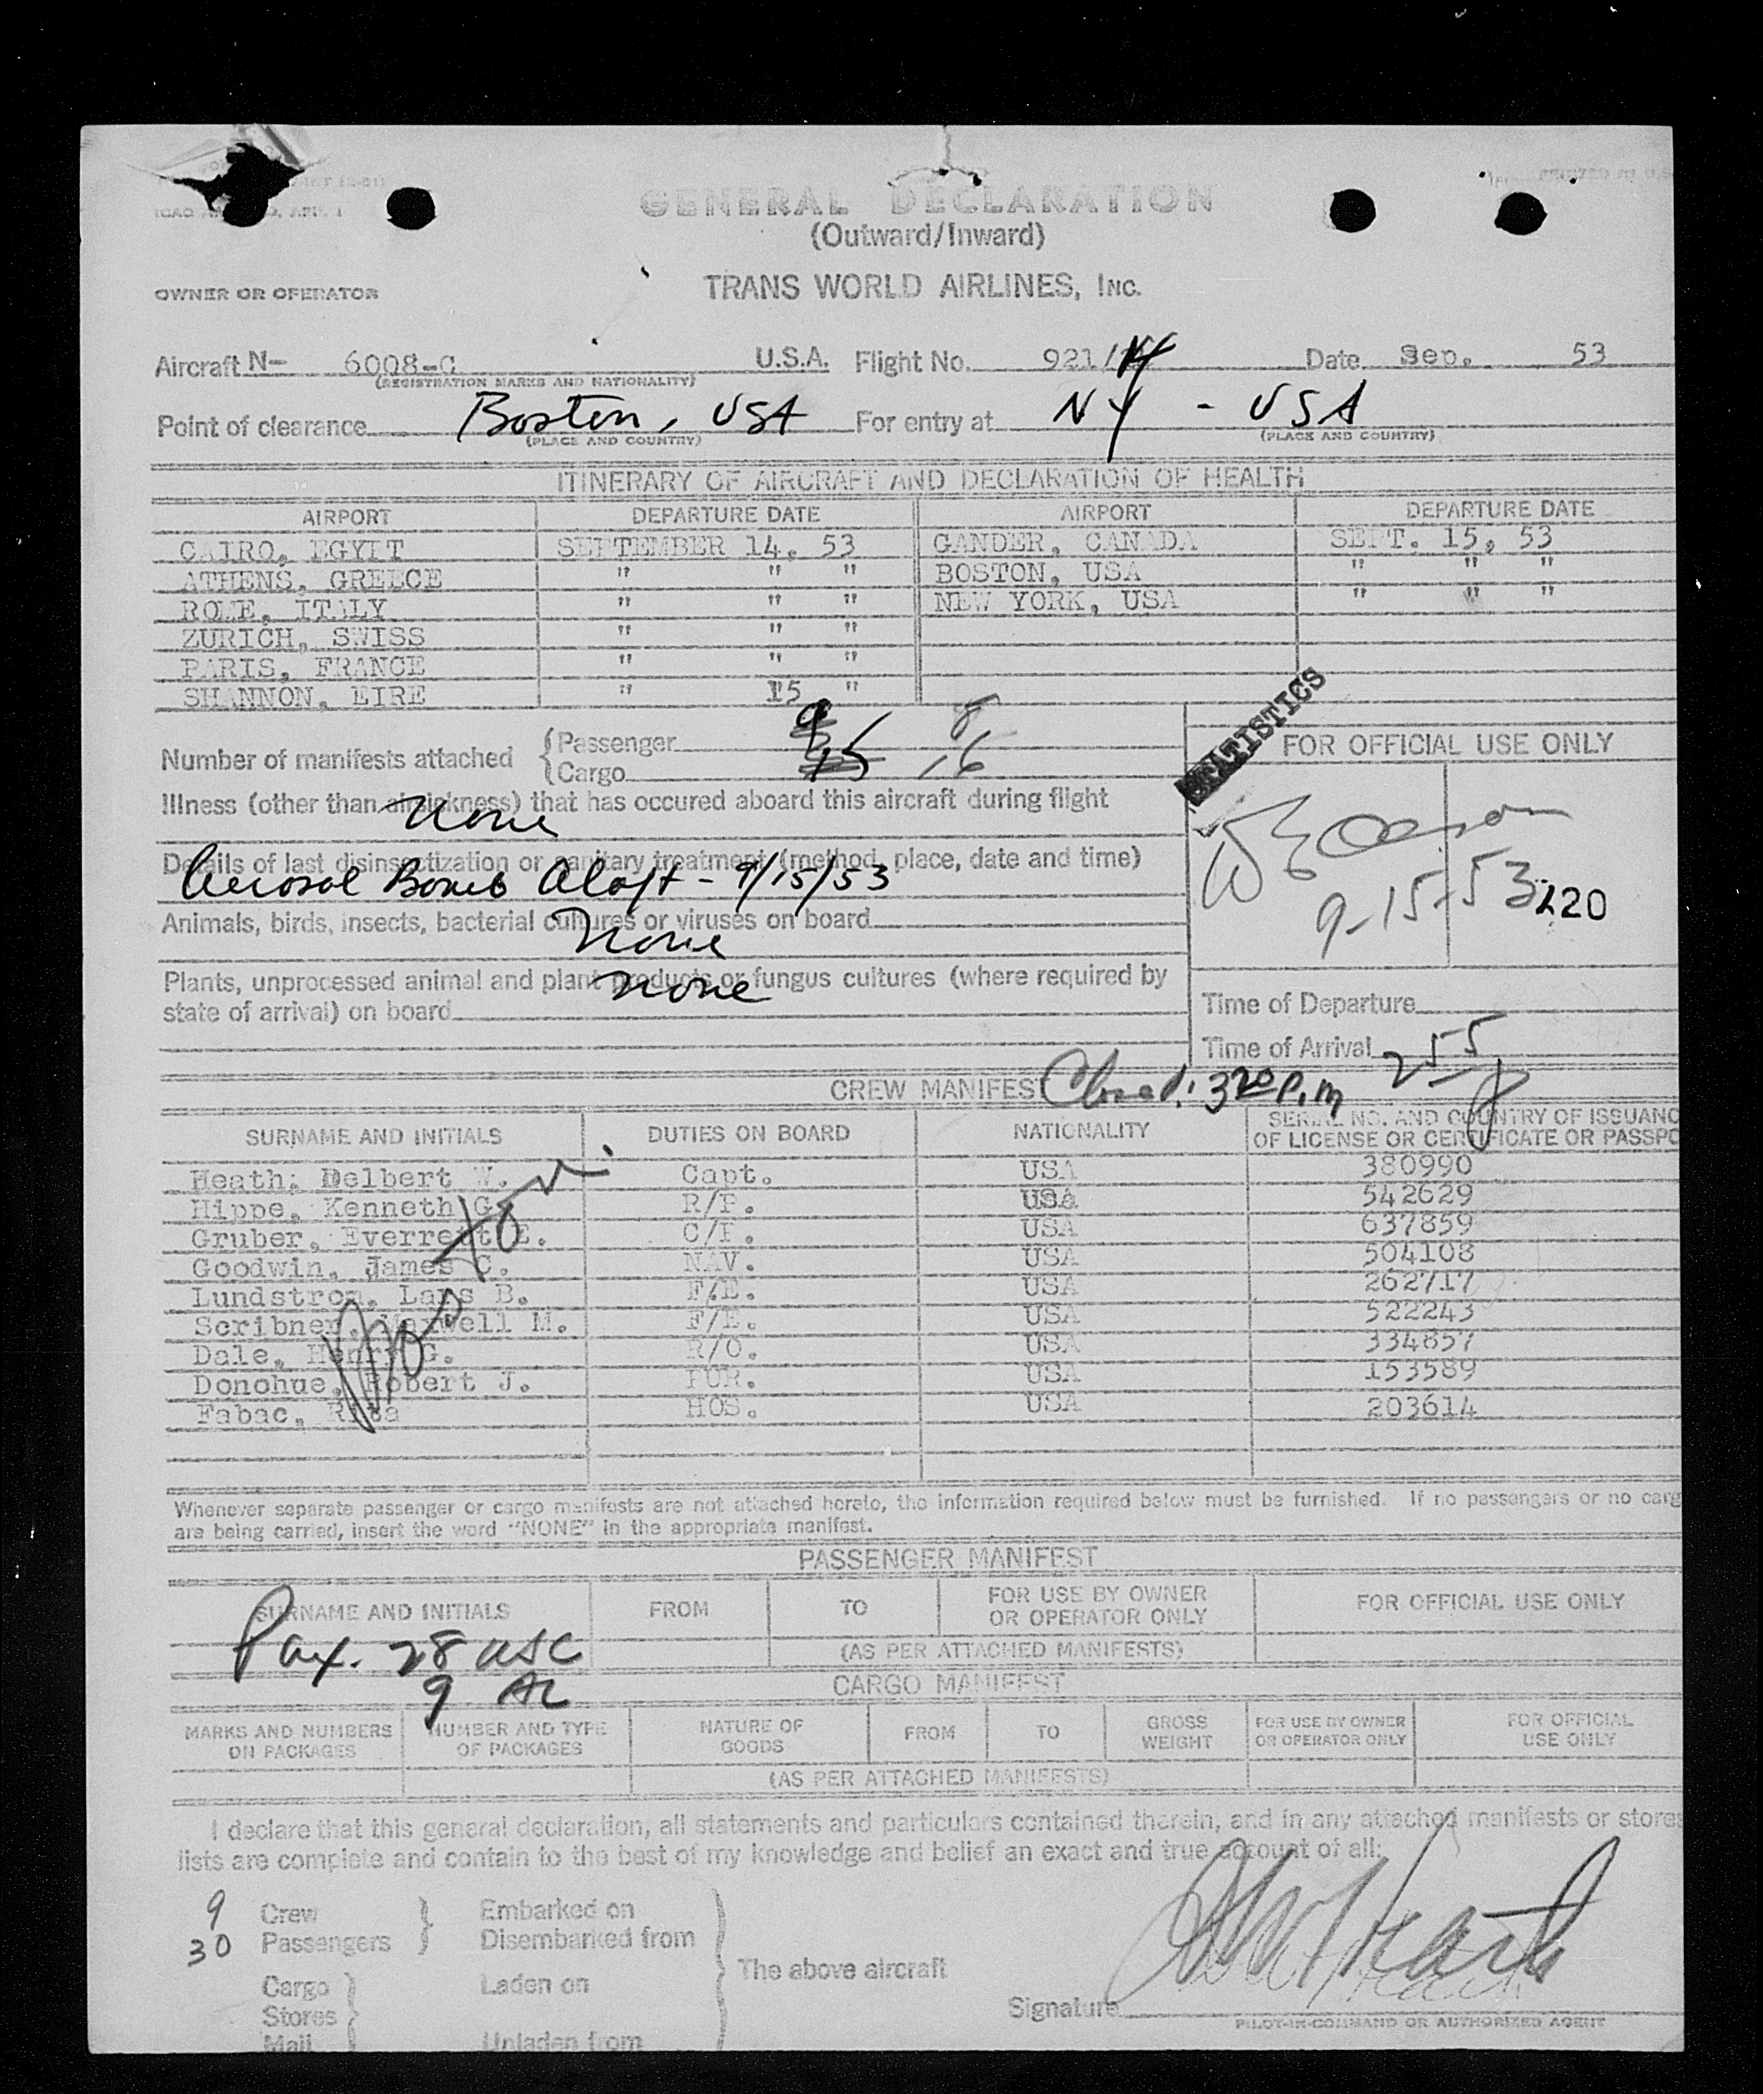 GENERAL DECLARATION
(Outward/Inward)
OWNER OR OPERATOR TRANS WORLD AIRLINES, INC.
Aircraft N- 6008-C U.S.A. Flight No. 921/14 Date Sep. 53
(REGISTRATION MARKS AND NATIONALITY)
Point of clearance Boston, USA For entry at NY - USA
(PLACE AND COUNTRY) (PLACE AND COUNTRY)
ITINERARY OF AIRCRAFT AND DECLARATION OF HEALTH
AIRPORT DEPARTURE DATE AIRPORT DEPARTURE DATE
CAIRO, EGYPT SEPTEMBER 14, 53 GANDER, CANADA SEPT. 15, 53
ATHENS, GREECE " " " BOSTON, USA " " "
ROME, ITALY " " " NEW YORK, USA " " "
ZURICH, SWISS " " "
PARIS, FRANCE " " "
SHANNON, EIRE " 15 "
STATISTICS
Number of manifests attached Passenger 8
Cargo 16
FOR OFFICIAL USE ONLY
Illness (other than airsickness) that has occured aboard this aircraft during flight
None
Details of last disinsectization or sanitary treatment (method, place, date and time)
Aerosol Bomb Aloft - 9/15/53
9-15-53 220
Animals, birds, insects, bacterial cultures or viruses on board
None
Plants, unprocessed animal and plant products or fungus cultures (where required by
state of arrival) on board None
Time of Departure
Time of Arrival 255 p
CREW MANIFEST Closed: 320 P.M
SURNAME AND INITIALS DUTIES ON BOARD NATIONALITY SERIAL NO. AND COUNTRY OF ISSUANC
OF LICENSE OR CERTIFICATE OR PASSPO
Heath, Delbert W. Capt. USA 380990
Hippe, Kenneth G. R/P. USA 542629
Gruber, Everrett E. C/P. USA 637859
Goodwin, James C. NAV. USA 504108
Lundstrom, Lars B. F/E. USA 262717
Scribner, Maxwell M. F/E. USA 522243
Dale, Henry G. R/O. USA 334857
Donohue, Robert J. PUR. USA 153589
Fabac, Rita HOS. USA 203614
Whenever separate passenger or cargo manifests are not attached hereto, the information required below must be furnished. If no passengers or no carg
are being carried, insert the word "NONE" in the appropriate manifest.
PASSENGER MANIFEST
SURNAME AND INITIALS FROM TO FOR USE BY OWNER OR OPERATOR ONLY FOR OFFICIAL USE ONLY
Pax. 28 USC (AS PER ATTACHED MANIFESTS)
9 AL
CARGO MANIFEST
MARKS AND NUMBERS ON PACKAGES NUMBER AND TYPE OF PACKAGES NATURE OF GOODS FROM TO GROSS WEIGHT FOR USE BY OWNER OR OPERATOR ONLY FOR OFFICIAL USE ONLY
(AS PER ATTACHED MANIFESTS)
I declare that this general declaration, all statements and particulars contained therein, and in any attached manifests or stores
lists are complete and contain to the best of my knowledge and belief an exact and true account of all:
9 Crew Embarked on
30 Passengers Disembarked from
The above aircraft
Cargo Laden on
Stores
Mail Unladen from
Signature DW Heath
PILOT-IN-COMMAND OR AUTHORIZED AGENT